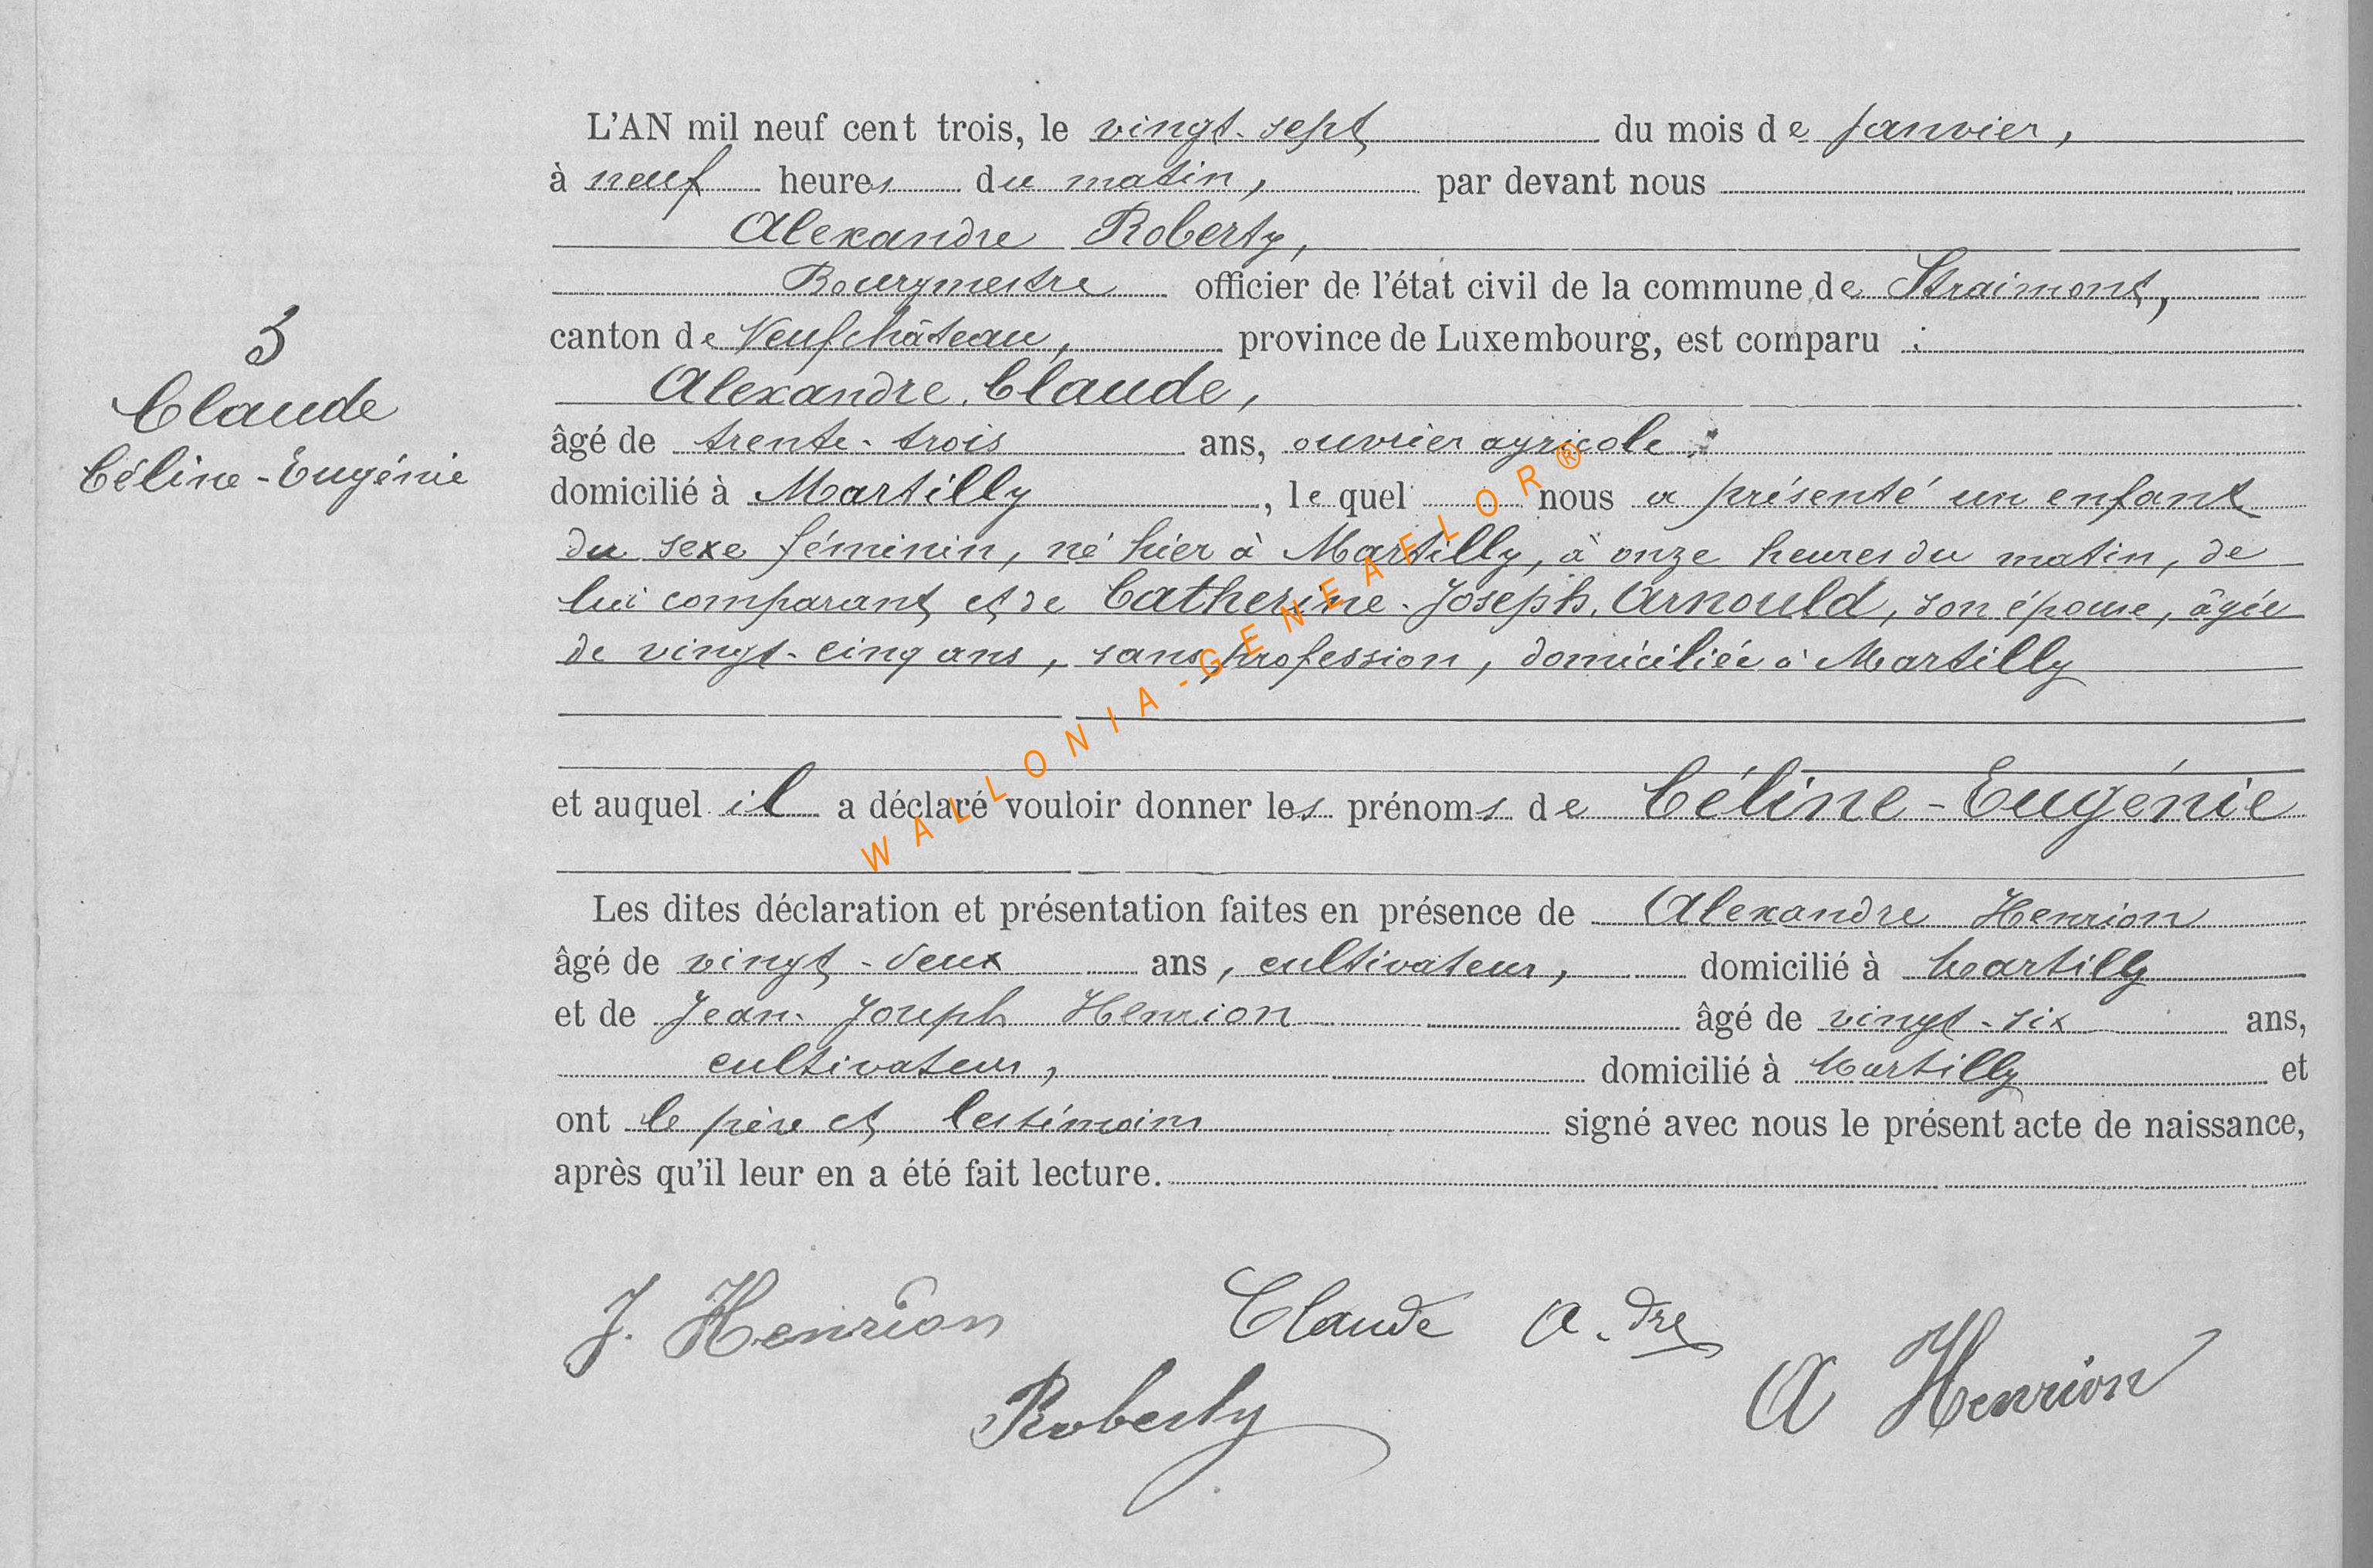 3
Claude
Céline-Eugénie
L'AN mil neuf cent trois, le vingt-sept du mois de janvier,
à neuf heures du matin, par devant nous
Alexandre Roberty,
Bourgmestre officier de l'état civil de la commune de Straimont,
canton de Neufchâteau, province de Luxembourg, est comparu :
Alexandre Claude,
âgé de trente-trois ans, ouvrier agricole,
domicilié à Martilly, lequel nous a présenté un enfant
du sexe féminin, né hier à Martilly, à onze heures du matin, de
lui comparant et de Catherine-Joseph Arnould, son épouse, âgée
de vingt-cinq ans, sans profession, domiciliée à Martilly
et auquel il a déclaré vouloir donner les prénoms de Céline-Eugénie
Les dites déclaration et présentation faites en présence de Alexandre Henrion
âgé de vingt-deux ans, cultivateur, domicilié à Martilly
et de Jean-Joseph Henrion âgé de vingt-six ans,
cultivateur, domicilié à Martilly et
ont le père et les témoins signé avec nous le présent acte de naissance,
après qu'il leur en a été fait lecture.
J. Henrion Claude A.dre
Roberty A Henrion
WALLONIA-GENEAFLOR®